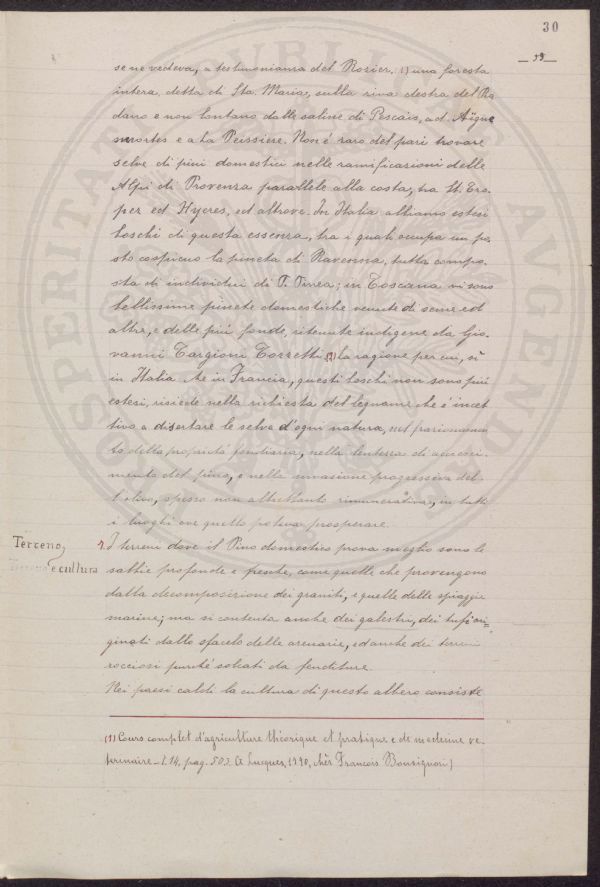 30
33
se ne vedeva, a testimonianza del Rozier, (1) una foresta
intera, detta di Sta. Maria, sulla riva destra del Ro
dano e non lontano dalle saline di Pescais, ad Aigue
smortes e a La Peissiere. Non è raro del pari trovare
selve di pini domestici nelle ramificazioni delle
Alpi di Provenza parallele alla costa, tra St. Tro-
pez ed Hyeres, ed altrove. In Italia abbiamo estesi
boschi di questa essenza, tra i quali occupa un po-
sto cospicuo la pineta di Ravenna, tutta compo-
sta di individui di P. Pinea; in Toscana vi sono
bellissime pinete domestiche venute di seme ed
altre, e delle più fonde, ritenute indigene da Gio-
vanni Targioni Tozzetti (2) La ragione per cui, sì
in Italia che in Francia, questi boschi non sono più
estesi, risiede nella richiesta del legname che è incen
tivo a disertare le selve d'ogni natura, nel frazionamen
to della proprietà fondiaria, nella lentezza di accresci-
mento del pino, e nella invasione progressiva del-
l'olivo, spesso non altrettanto rimunerativo, in tutti
i luoghi ove quello poteva prosperare.
Terreno,
e cultura
I terreni dove il Pino domestico prova meglio sono le
sabbie profonde e fresche, come quelle che provengono
dalla decomposizione dei graniti, e quelle delle spiaggie
marine; ma si contenta anche dei galestri, dei tufi ori=
ginati dallo sfacelo delle arenarie, ed anche dei terreni
rocciosi purché solcati da fenditure.
Nei paesi caldi la cultura di questo albero consiste
(1) Cours complet d'agriculture théorique et pratique e de medecine ve-
terinaire - t. 14, pag. 503. (A Lucques, 1790, chès François Bonsignori)